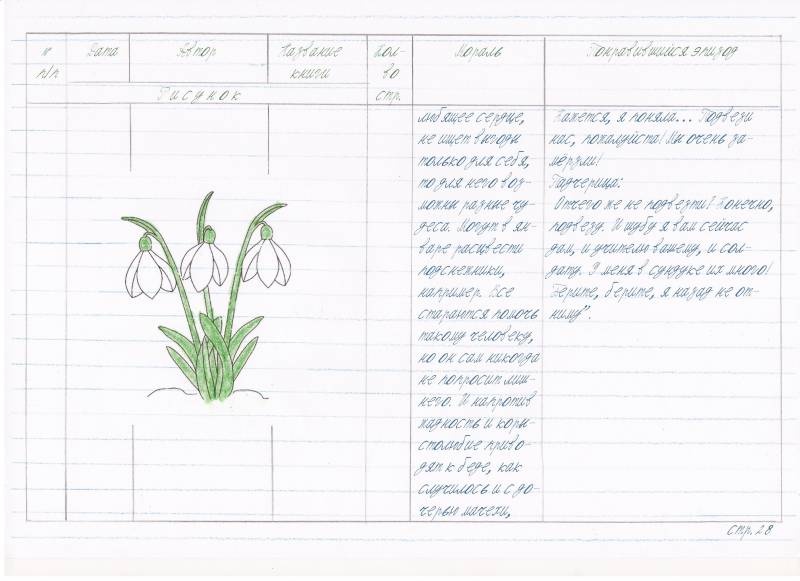 № п/п
Дата
Автор
Название
книги
Кол-
во
стр.
Мораль
Понравившийся эпизод
Рисунок
любящее сердце,
не ищет выгоды
только для себя,
то для него воз-
можны разные чу-
деса. Могут в ян-
варе расцвести
подснежники,
например. Все
стараются помочь
такому человеку,
но он сам никогда
не попросит лиш-
него. И напротив
жадность и коры-
столюбие приво-
дят к беде, как
случилось и с до-
черью мачехи,
Кажется, я поняла... Подвези
нас, пожалуйста! Мы очень за-
мёрзли!
Падчерица:
Отчего же не подвезти? Конечно,
подвезу. И шубу я вам сейчас
дам, и учителю вашему, и сол-
дату. У меня в сундуке их много!
Берите, берите, я назад не от-
ниму".
стр. 28